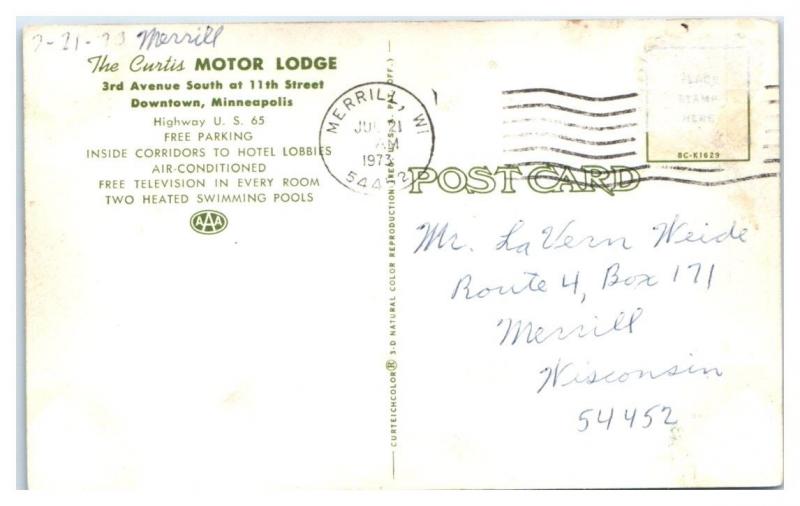 7-21-73 Merrill
The Curtis MOTOR LODGE
3rd Avenue South at 11th Street
Downtown, Minneapolis
Highway U. S. 65
FREE PARKING
INSIDE CORRIDORS TO HOTEL LOBBIES
AIR-CONDITIONED
FREE TELEVISION IN EVERY ROOM
TWO HEATED SWIMMING POOLS
AAA
CURTEICHCOLOR® 3-D NATURAL COLOR REPRODUCTION (REG. U.S.A. PAT. OFF.)
MERRILL, WI
JUL 21
AM
1973
54452
PLACE
STAMP
HERE
8C-K1629
POST CARD
Mr. LaVern Weide
Route 4, Box 171
Merrill
Wisconsin
54452